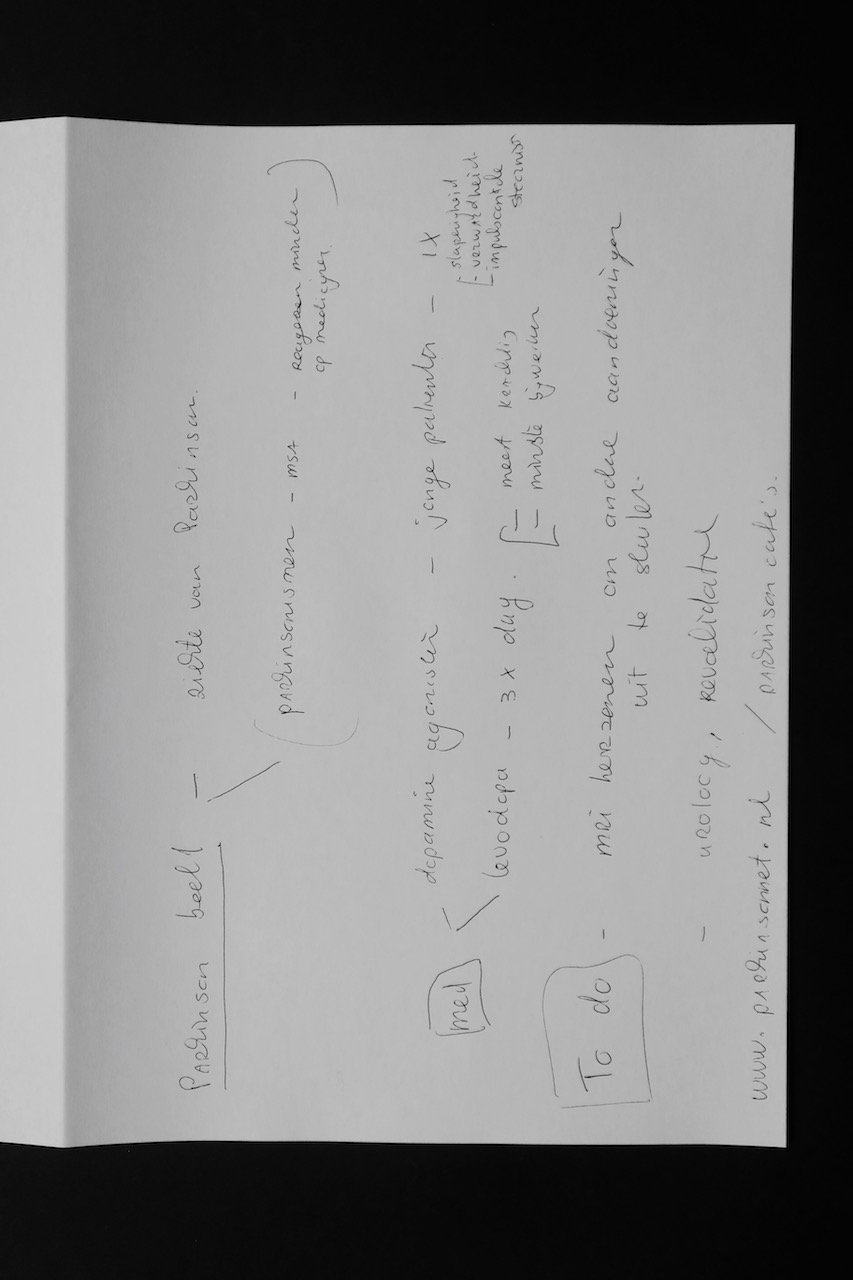 Parkinson beeld - ziekte van Parkinson.
(parkinsonismen - MSA - reageren minder
op medicijnen)
med
dopamine agonisten - jonge patienten - 1x
- slaperigheid
- verwardheid
- impulscontrole
stoornis
levodopa - 3 x dag.
- meest krachtig
- minste bijwerken
To do
- MRI hersenen om andere aandoeningen
uit te sluiten.
- urology, revalidatie
www.parkinsonnet.nl / parkinson café's.